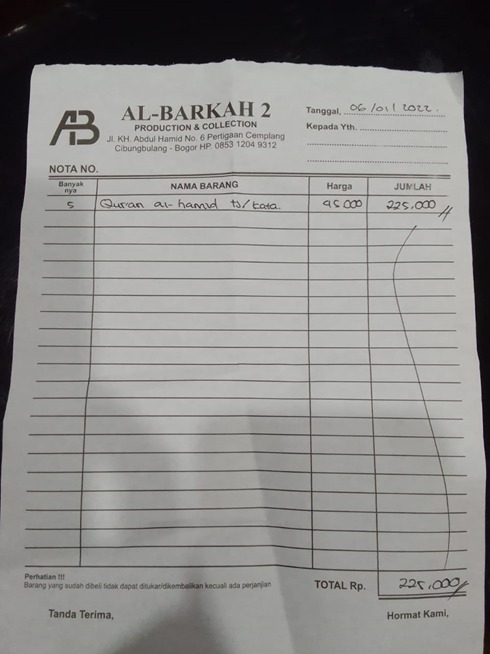 AB
AL-BARKAH 2
PRODUCTION & COLLECTION
Jl. KH. Abdul Hamid No. 6 Pertigaan Cemplang
Cibungbulang - Bogor HP. 0853 1204 9312
Tanggal, 06/01/2022
Kepada Yth.
NOTA NO.
Banyak nya NAMA BARANG Harga JUMLAH
5 Qur'an al-hamid ts/kata. 45.000 225.000
Perhatian !!!
Barang yang sudah dibeli tidak dapat ditukar/dikembalikan kecuali ada perjanjian
TOTAL Rp. 225.000
Tanda Terima, Hormat Kami,